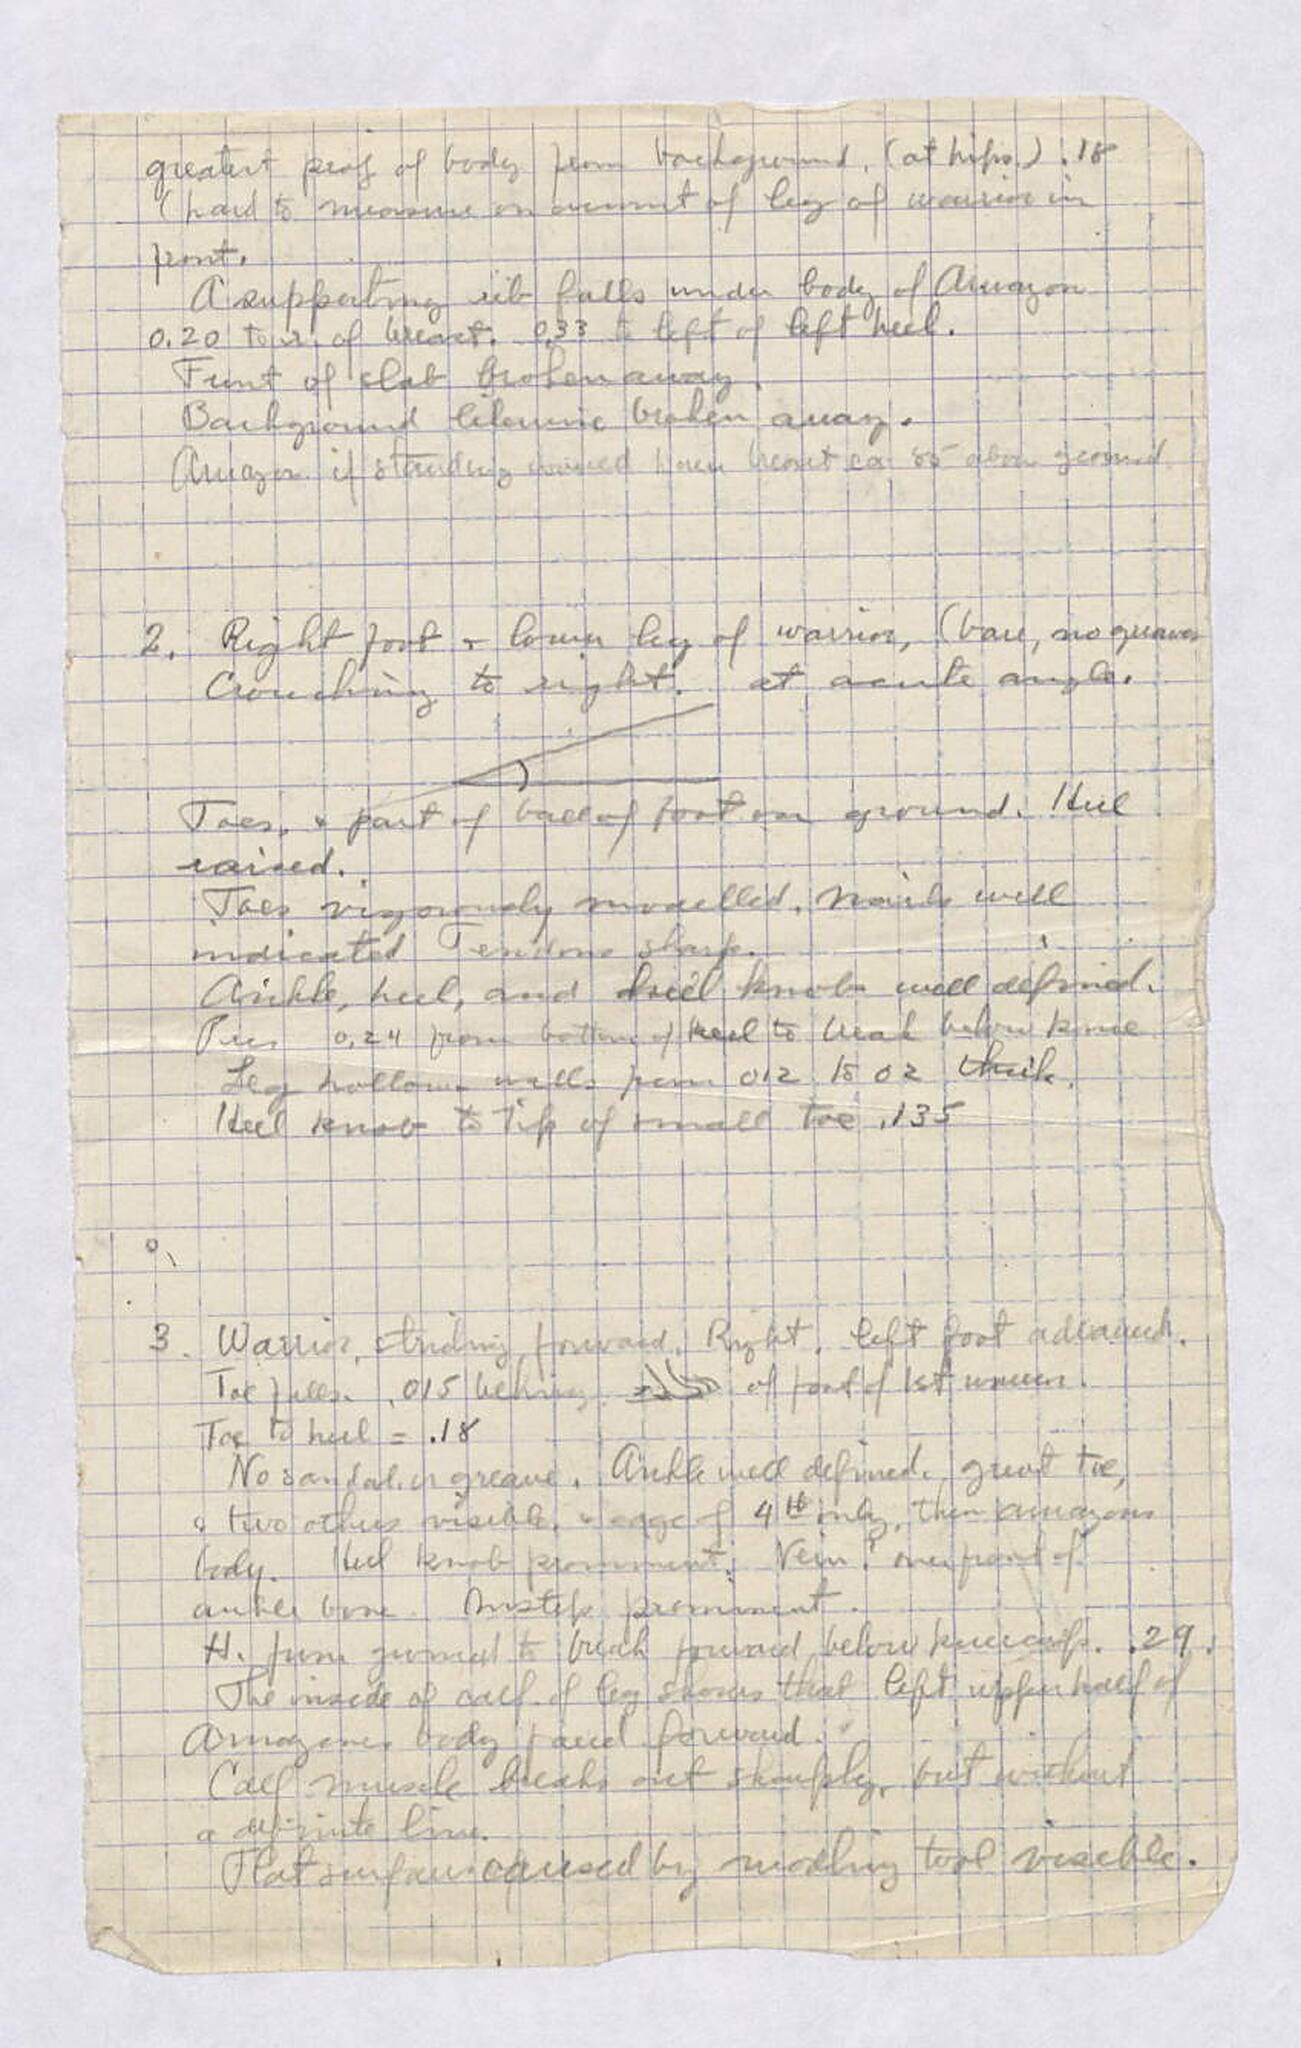 greatest proj of body from background. (at hips.) .18
(hard to measure on account of leg of warrior in
front.
A supporting rib falls under body of Amazon
0.20 to r. of breast. 0.33 to left of left heel.
Front of slab broken away.
Background likewise broken away.
Amazon if standing would have breast ca. 85 above ground
2. Right foot + lower leg of warrior, (bare, no greaves
Crouching to right. at acute angle.
Toes, + part of ball of foot on ground. Heel
raised.
Toes vigorously modelled. Nails well
indicated Tendons sharp.
Ankle, heel, and heel knob well defined.
Pres 0,24 from bottom of heel to break below knee
Leg hollow walls from 012 to 02 thick.
Heel knob to tip of small toe .135
3. Warrior, striding forward. Right. left foot advanced.
Toe pres. .015 behind of foot of 1st warrior.
Toe to heel = .18
No sandal or greave. Ankle well defined. great toe,
+ two others visible, + edge of 4th only, then amazons
body. Heel knob prominent. Vein over part of
ankle bone. Instep prominent.
H. from ground to break forward below kneecap. .29.
The inside of calf of leg shows that left upper half of
Amazons body faced forward.
Calf muscle breaks out sharply, but without
a definite line.
Flat surface caused by modling tool visible.